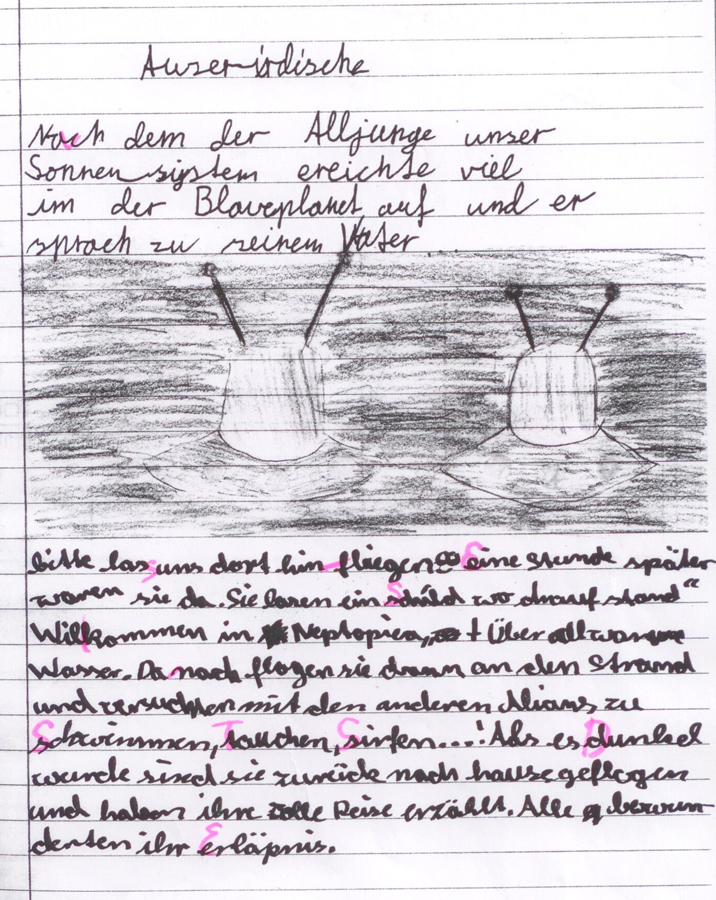 Auserirdische
Nach dem der Alljunge unser
Sonnensystem ereichte viel
im der Blaueplanet auf und er
sprach zu seinem Vater...
bitte lass uns dort hin-fliegen. Eine Stunde später
waren sie da. Sie lasen ein Schild wo drauf stand"
Willkommen in Neptopien, Über all war
Wasser. Da nach flogen sie dann an den Strand
und versuchten mit den anderen Alians zu
Schwimmen, Tauchen, Sirfen...! Als es Dunkel
wurde sind sie zurück nach hause geflogen
und haben ihre tolle Reise erzählt. Alle bewun
derten ihr Erläpnis.